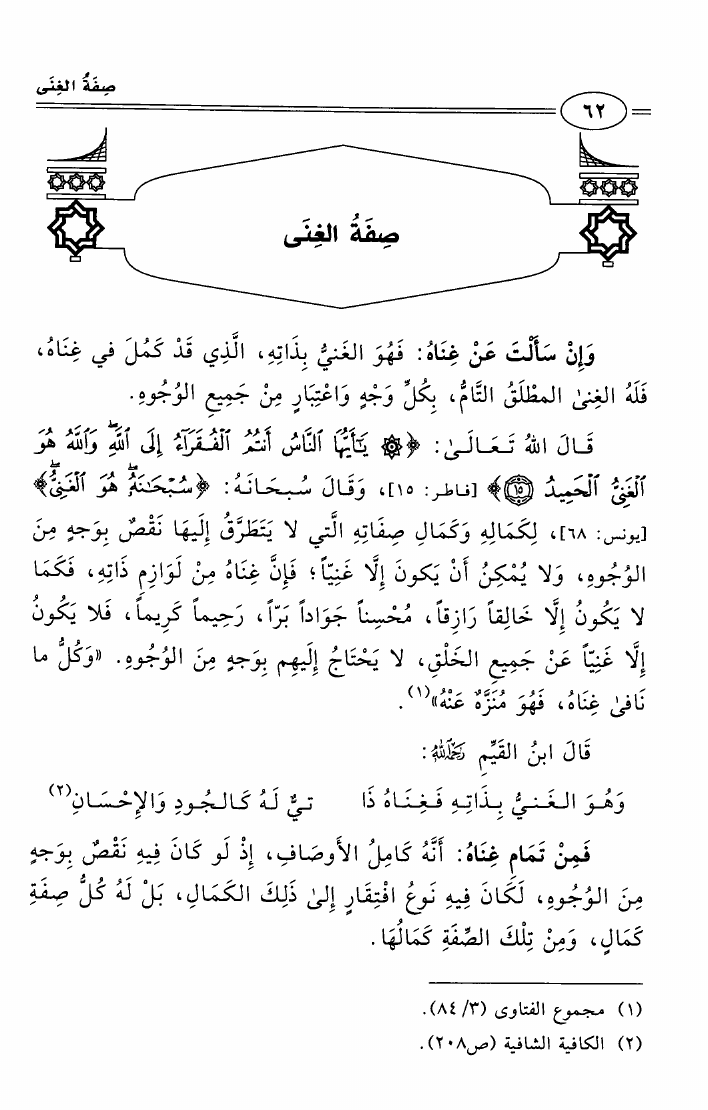 صِفَةُ الغِنَى
٦٢
صِفَةُ الغِنَى
وَإِنْ سَأَلْتَ عَنْ غِنَاهُ: فَهُوَ الغَنيُّ بِذَاتِهِ، الَّذِي قَدْ كَمُلَ في غِنَاهُ،
فَلَهُ الغِنىٰ المطْلَقُ التَّامُّ، بِكُلِّ وَجْهٍ وَاعْتِبَارٍ مِنْ جَمِيعِ الوُجُوهِ.
قَـالَ اللهُ تَـعَـالَـىٰ: ﴿۞ يَـٰٓأَيُّهَا ٱلنَّاسُ أَنتُمُ ٱلْفُقَرَآءُ إِلَى ٱللَّهِۖ وَٱللَّهُ هُوَ
ٱلْغَنِيُّ ٱلْحَمِيدُ ۝١٥﴾ [فاطر: ١٥]، وَقَالَ سُبحَانَهُ: ﴿سُبْحَـٰنَهُۥۖ هُوَ ٱلْغَنِيُّۖ﴾
[يونس: ٦٨]، لِكَمَالِهِ وَكَمَالِ صِفَاتِهِ الَّتي لا يَتَطَرَّقُ إِلَيهَا نَقْصٌ بِوَجهٍ مِنَ
الوُجُوهِ، وَلا يُمْكِنُ أَنْ يَكونَ إِلَّا غَنِيّاً؛ فَإِنَّ غِنَاهُ مِنْ لَوَازِمِ ذَاتِهِ، فَكَمَا
لا يَكُونُ إِلَّا خَالِقاً رَازِقاً، مُحْسِناً جَوَاداً بَرّاً، رَحِيماً كَرِيماً، فَلا يَكُونُ
إِلَّا غَنِيّاً عَنْ جَمِيعِ الخَلْقِ، لا يَحْتَاجُ إِلَيهِم بِوَجهٍ مِنَ الوُجُوهِ. «وَكُلُّ ما
نَافىٰ غِنَاهُ، فَهُوَ مُنَزَّهٌ عَنْهُ»(١).
قَالَ ابنُ القَيِّمِ رَحِمَهُ اللهُ:
وَهُـوَ الـغَـنـيُّ بِـذَاتِـهِ فَـغِـنَـاهُ ذَا تيٌّ لَـهُ كَـالـجُـودِ وَالإِحْـسَـانِ(٢)
فَمِنْ تَمَامِ غِنَاهُ: أَنَّهُ كَامِلُ الأَوصَافِ، إِذْ لَو كَانَ فِيهِ نَقْصٌ بِوَجهٍ
مِنَ الوُجُوهِ، لَكَانَ فِيهِ نَوعُ افْتِقَارٍ إِلىٰ ذَلِكَ الكَمَالِ، بَلْ لَهُ كُلُّ صِفَةِ
كَمَالٍ، وَمِنْ تِلْكَ الصِّفَةِ كَمَالُهَا.
(١) مجموع الفتاوى (٣/ ٨٤).
(٢) الكافية الشافية (ص٢٠٨).